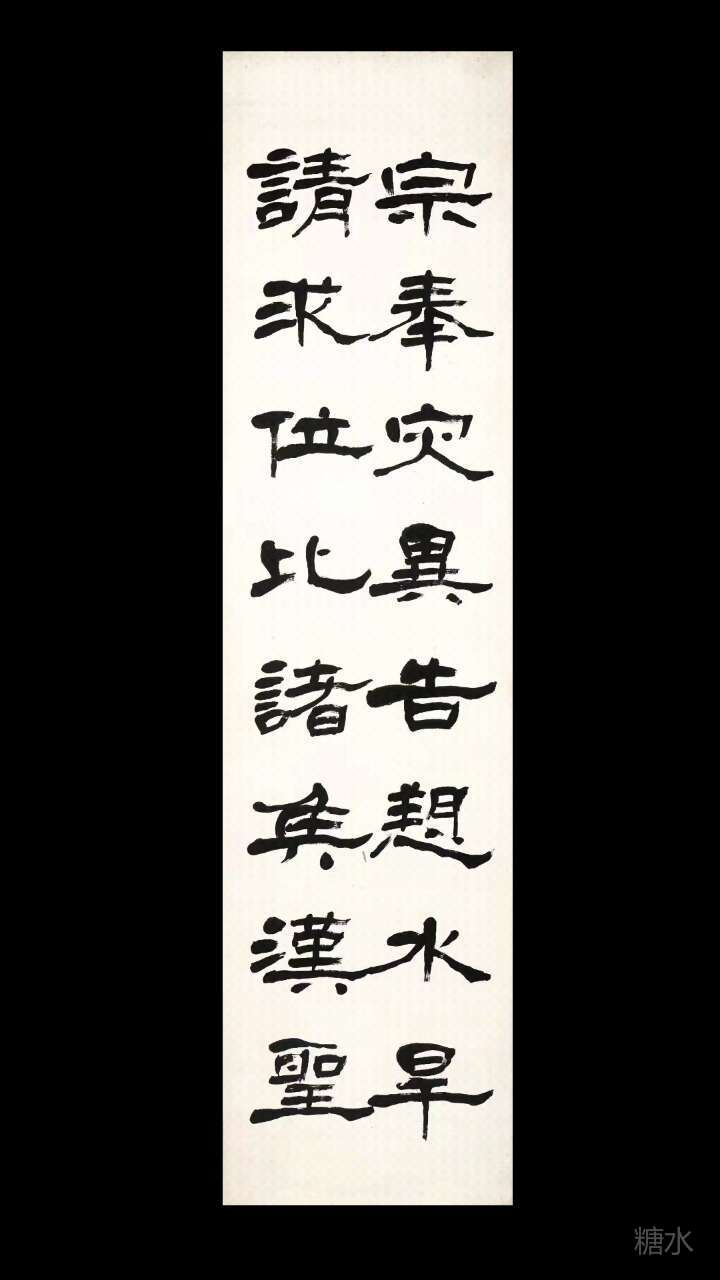 宗奉灾異告愬水旱
請求位比諸矦漢聖
糖水